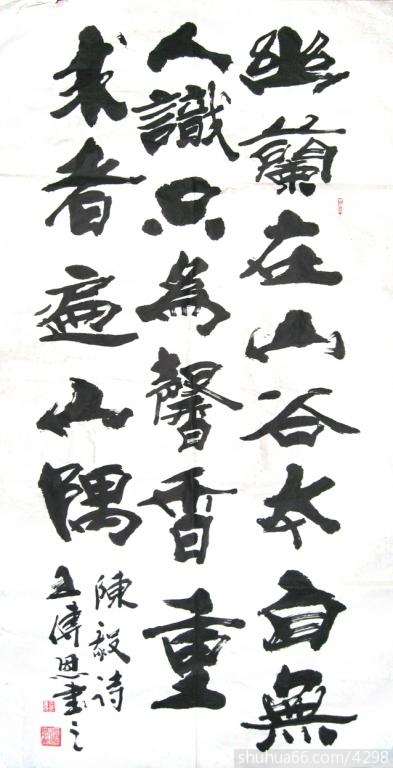 幽蘭在山谷本自無
人識只為馨香重
求者遍山隅
陳毅詩
王傳恩書之
shuhua66.com/4298